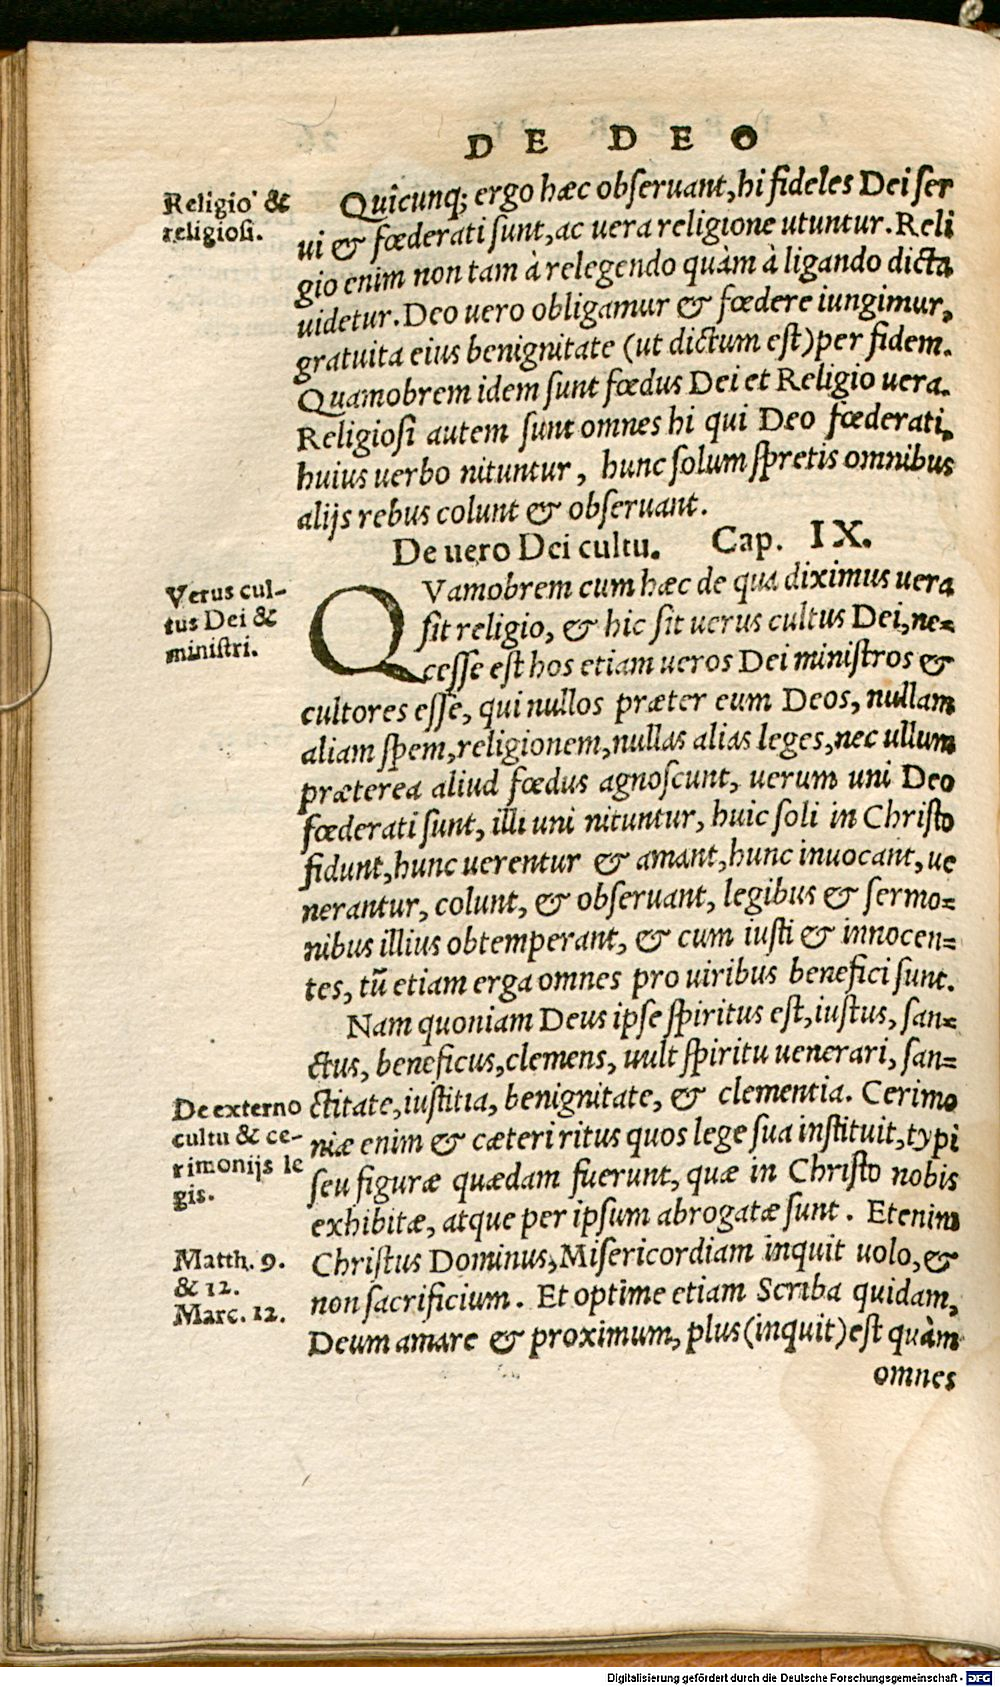 DE DEO
Religio & 
religiosi.
Quicunq; ergo hæc obseruant, hi fideles Dei ser
ui & fœderati sunt, ac uera religione utuntur. Reli
gio enim non tam à relegendo quàm à ligando dicta
uidetur. Deo uero obligamur & fœdere iungimur,
gratuita eius benignitate (ut dictum est) per fidem.
Quamobrem idem sunt fœdus Dei et Religio uera.
Religiosi autem sunt omnes hi qui Deo fœderati,
huius uerbo nituntur, hunc solum spretis omnibus
alijs rebus colunt & obseruant.
De uero Dei cultu. Cap. IX.
Verus cul-
tus Dei &
ministri.
QVamobrem cum hæc de qua diximus uera
sit religio, & hic sit uerus cultus Dei, ne=
cesse est hos etiam ueros Dei ministros &
cultores esse, qui nullos præter eum Deos, nullam
aliam spem, religionem, nullas alias leges, nec ullum
præterea aliud fœdus agnoscunt, uerum uni Deo
fœderati sunt, illi uni nituntur, huic soli in Christo
fidunt, hunc uerentur & amant, hunc inuocant, ue
nerantur, colunt, & obseruant, legibus & sermo=
nibus illius obtemperant, & cum iusti & innocen=
tes, tū etiam erga omnes pro uiribus benefici sunt.
Nam quoniam Deus ipse spiritus est, iustus, san=
ctus, beneficus, clemens, uult spiritu uenerari, san=
ctitate, iustitia, benignitate, & clementia. Cerimo
niæ enim & cæteri ritus quos lege sua instituit, typi
seu figuræ quædam fuerunt, quæ in Christo nobis
exhibitæ, atque per ipsum abrogatæ sunt. Etenim
Christus Dominus, Misericordiam inquit uolo, &
non sacrificium. Et optime etiam Scriba quidam,
Deum amare & proximum, plus (inquit) est quàm
De externo
cultu & ce-
rimonijs le
gis.
Matth. 9.
& 12.
Marc. 12.
omnes
Digitalisierung gefördert durch die Deutsche Forschungsgemeinschaft - DFG